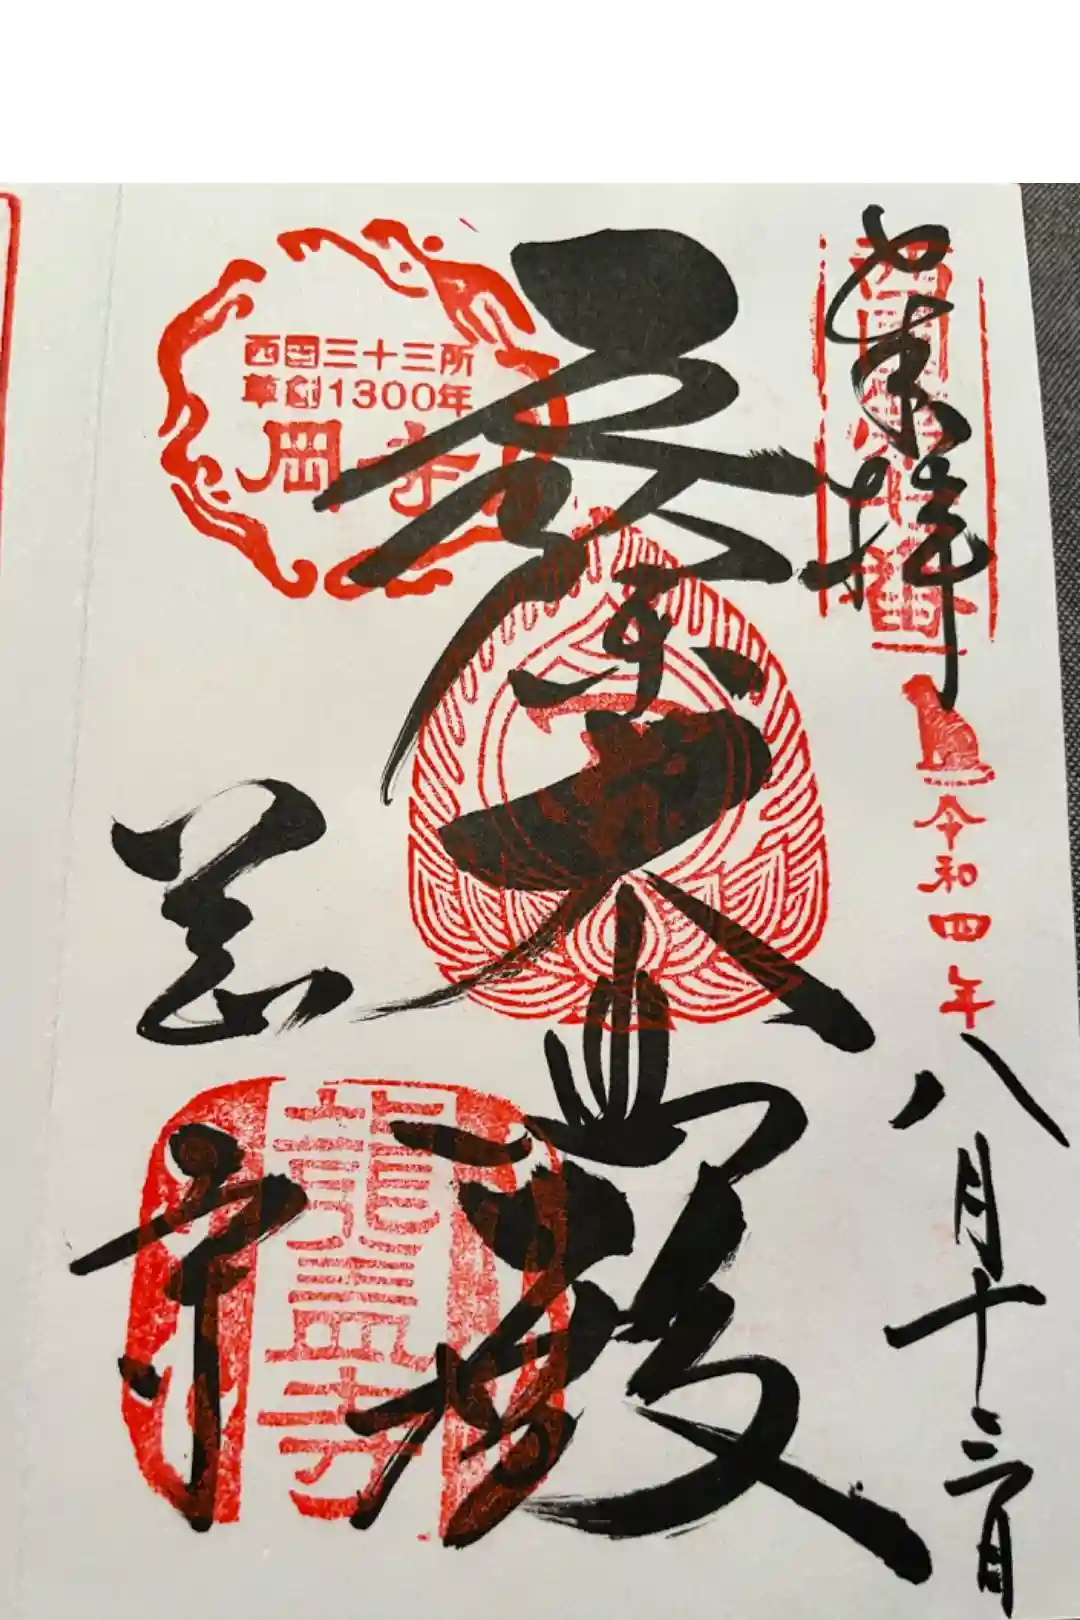 奉拝
令和四年
八月十三日
大悲殿
西国三十三所
草創1300年
岡寺
岡寺
龍蓋寺